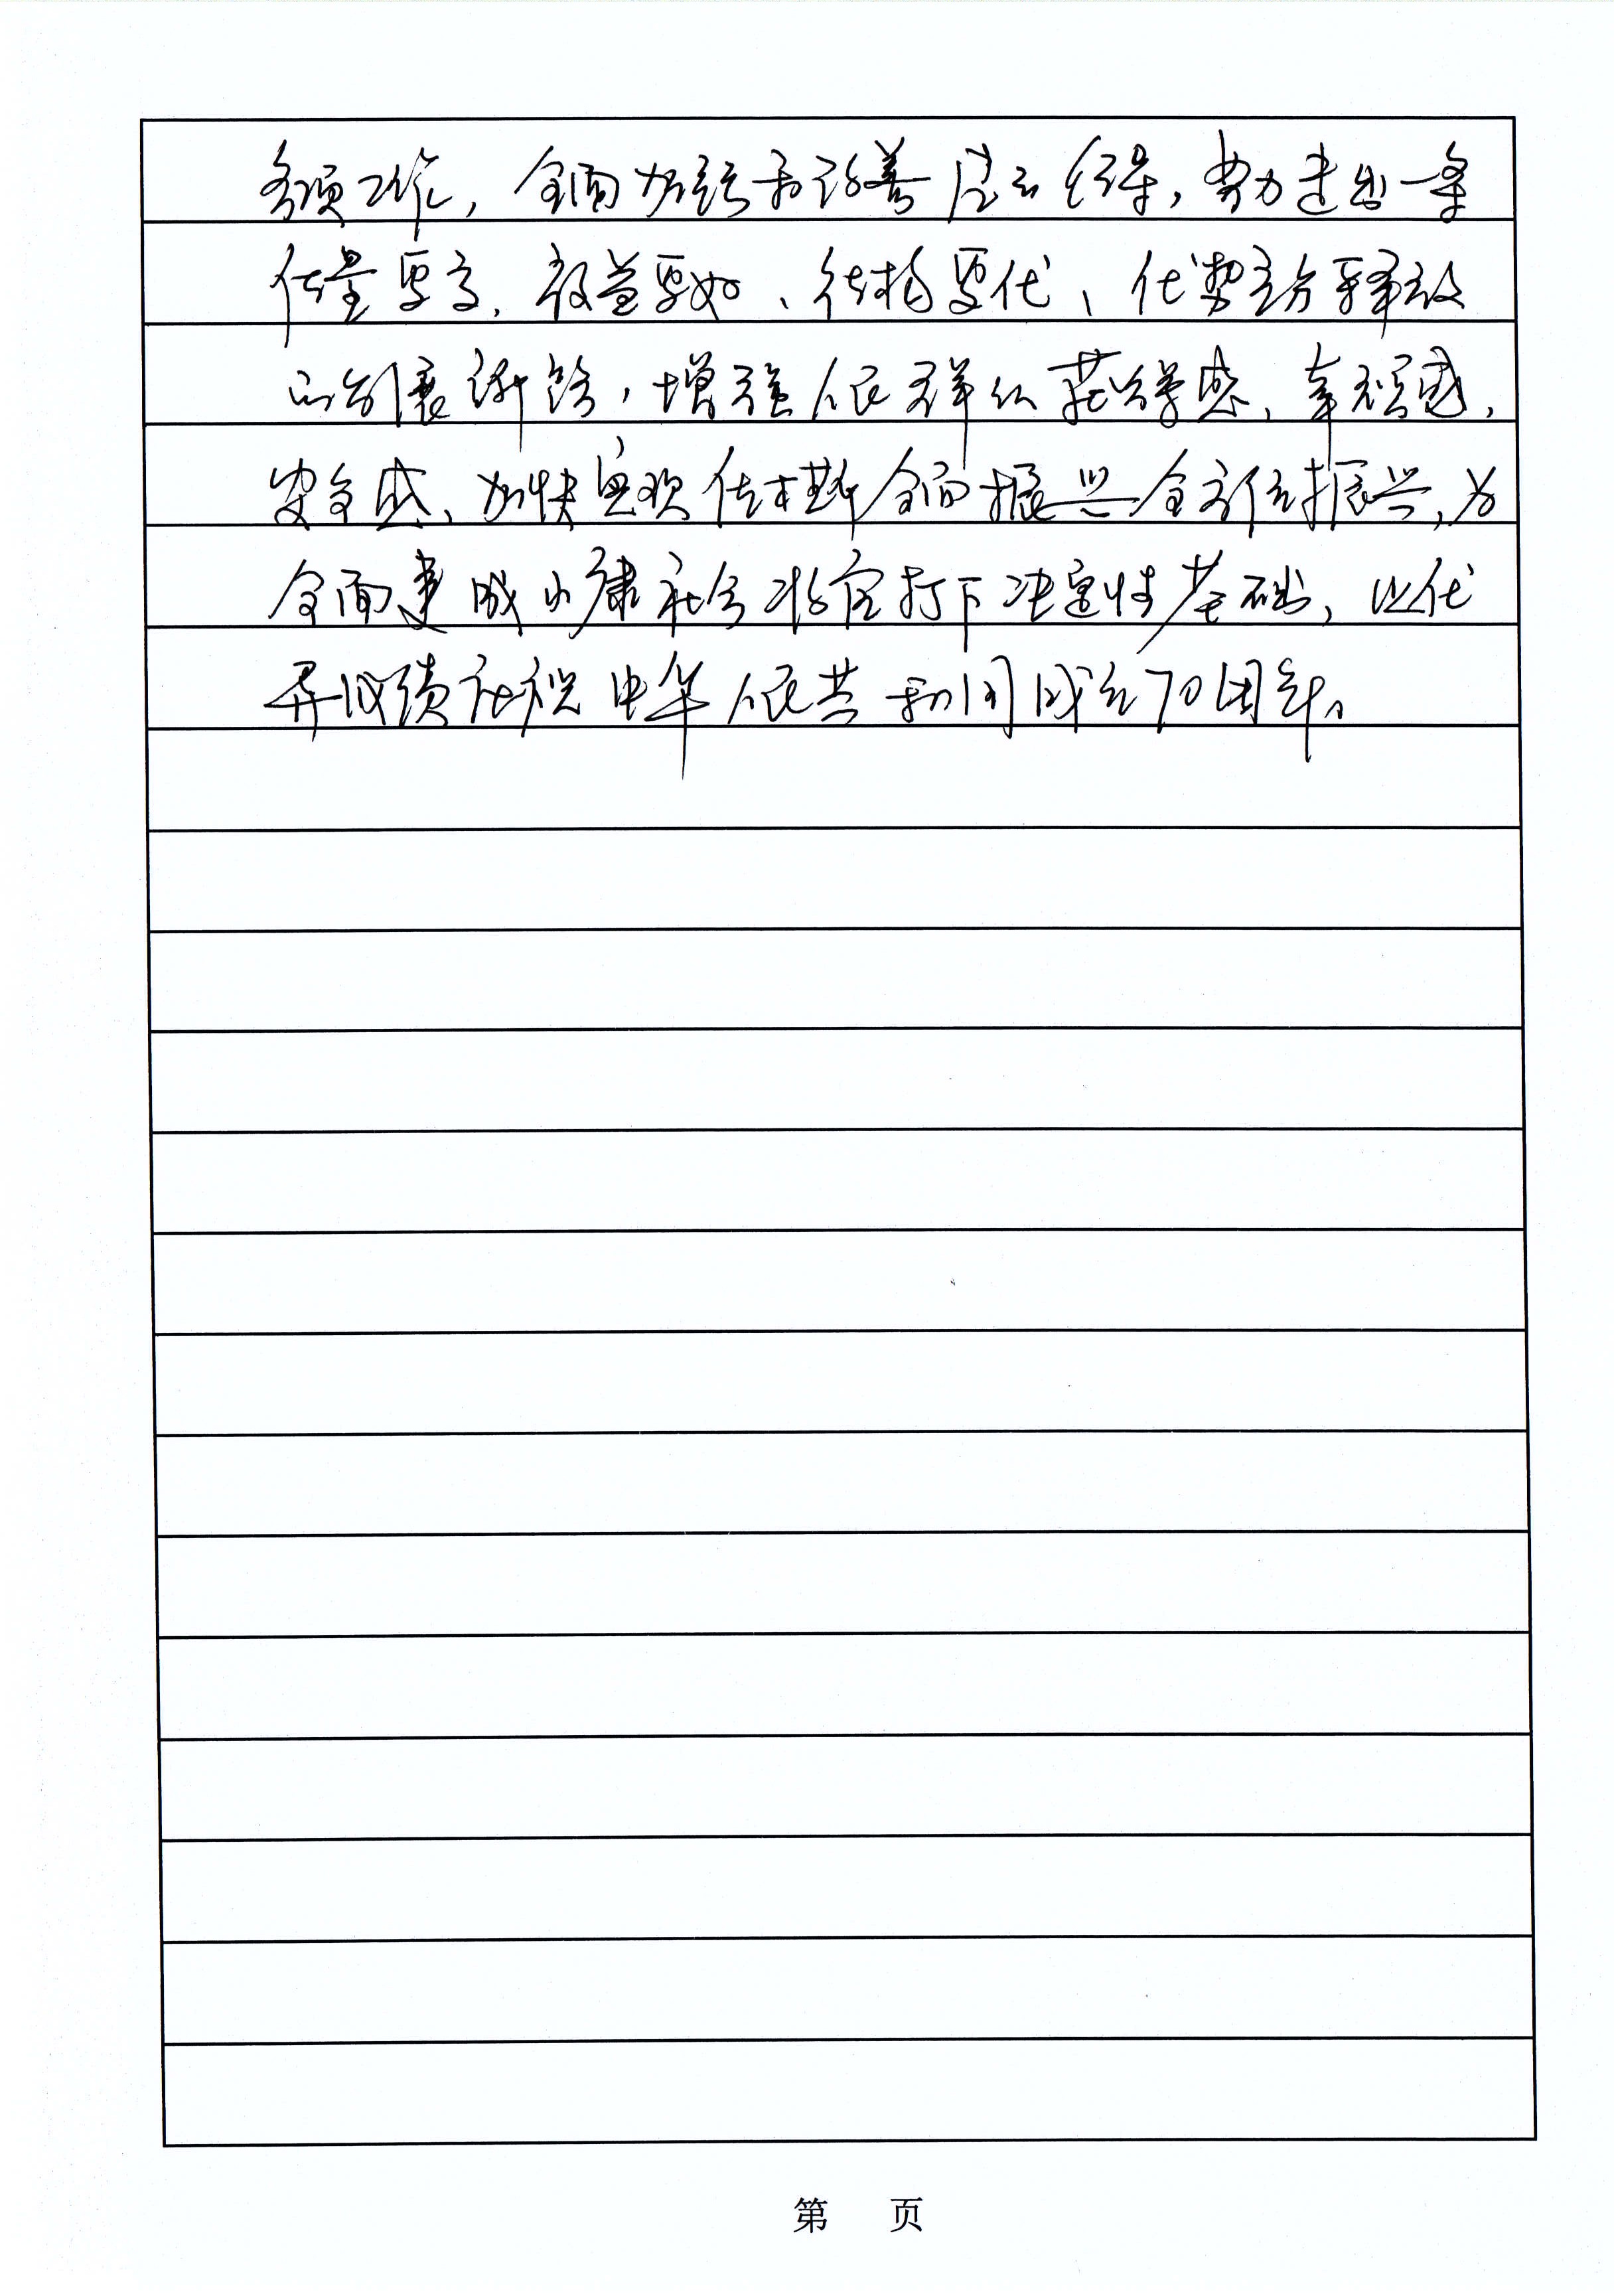 各项工作，全面加强和改善党的领导，努力走出一条
质量更高、效益更好、结构更优、优势充分释放
的发展新路，增强人民群众获得感、幸福感、
安全感，加快实现佳木斯全面振兴全方位振兴，为
全面建成小康社会收官打下决定性基础，以优
异成绩庆祝中华人民共和国成立70周年。
第 页